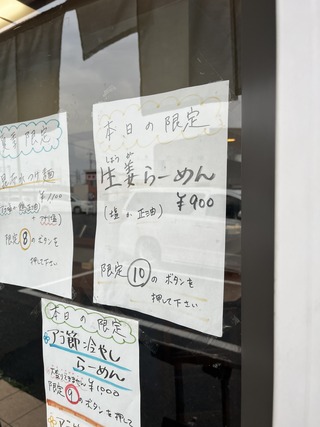 限定
つけ麺
¥1100
限定⑧のボタンを
押して下さい
本日の限定
しょうが
生姜らーめん
¥900
(塩か正油)
限定⑩のボタンを
押して下さい
本日の限定
冷やし
らーめん
¥1000
限定⑨のボタンを押して